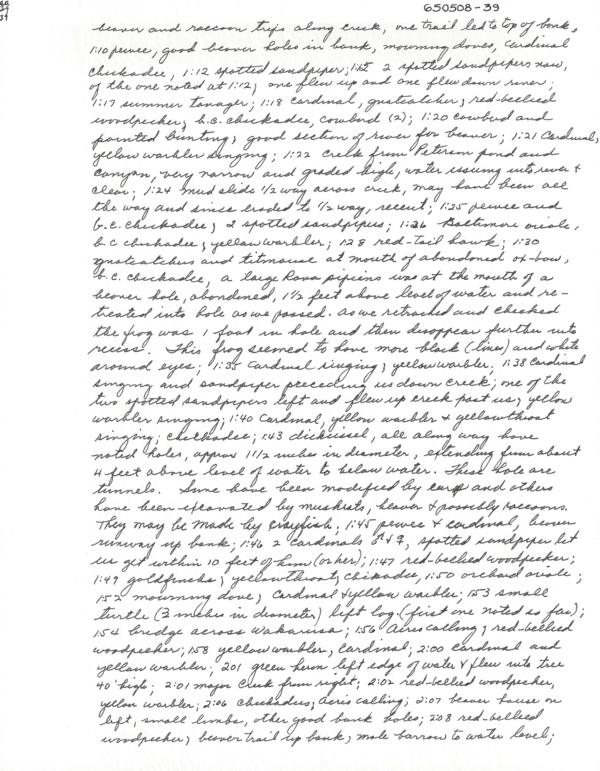 650508-39
beaver and raccoon trips along creek, one trail led to top of bank,
1:10 pewee, good beaver holes in bank, mourning doves, Cardinal
chickadee, 1:12 spotted sandpiper; 2 spotted sandpipers now,
of the one noted at 1:12, one flew up and one flew down river;
1:17 summer tanager; 1:18 cardinal, gnatcatcher, red-bellied
woodpecker, b.c. chickadee, cowbird (2); 1:20 cowbird and
painted bunting, good section of river for beaver; 1:21 Cardinal,
yellow warbler singing; 1:22 creek from Peterson pond and
canyon, very narrow and graded high, water issuing into river &
clear; 1:24 mud slide 1/2 way across creek, may have been all
the way and since eroded to 1/2 way, recent; 1:25 pewee and
b.c. chickadee, 2 spotted sandpipers; 1:26 Baltimore oriole,
b.c chickadee, yellow warbler; 1:28 red-tail hawk; 1:30
gnatcatcher and titmouse at mouth of abandoned ox-bow,
b.c. chickadee, a large Rana pipiens was at the mouth of a
beaver hole, abandoned, 1 1/2 feet above level of water and re-
treated into hole as we passed. As we retracked and checked
the frog was 1 foot in hole and then disappear further into
recess. This frog seemed to have more black (lines) and white
around eyes; 1:35 Cardinal singing, yellow warbler, 1:38 Cardinal
singing and sandpiper preceeding us down creek; one of the
two spotted sandpipers left and flew up creek past us; yellow
warbler singing; 1:40 Cardinal, yellow warbler & yellowthroat
singing; chickadee; 1:43 dickcissel, all along way have
noted holes, approx 1 1/2 inches in diameter, extending from about
4 feet above level of water to below water. These hole are
tunnels. Some have been modified by and others
have been excavated by muskrats, beaver & possibly raccoons.
They may be made by crayfish. 1:45 pewee & cardinal, beaver
runway up bank; 1:46 2 cardinals ♂ & ♀, spotted sandpiper let
us get within 10 feet of him (or her); 1:47 red-bellied woodpecker;
1:49 goldfinch, yellowthroat, chickadee, 1:50 orchard oriole;
1:52 mourning dove, Cardinal & yellow warbler; 1:53 small
turtle (3 inches in diameter) left log (first one noted so far);
1:54 bridge across Wakarusa; 1:56 Acris calling, red-bellied
woodpecker; 1:58 yellow warbler, Cardinal; 2:00 Cardinal and
yellow warbler; 2:01 green heron left edge of water & flew into tree
40' high; 2:01 major creek from right; 2:02 red-bellied woodpecker,
yellow warbler; 2:06 Chickadees, Acris calling; 2:07 beaver house on
left, small limbs, other good bank holes; 2:08 red-bellied
woodpecker, beaver trail up bank, mole burrow to water level;